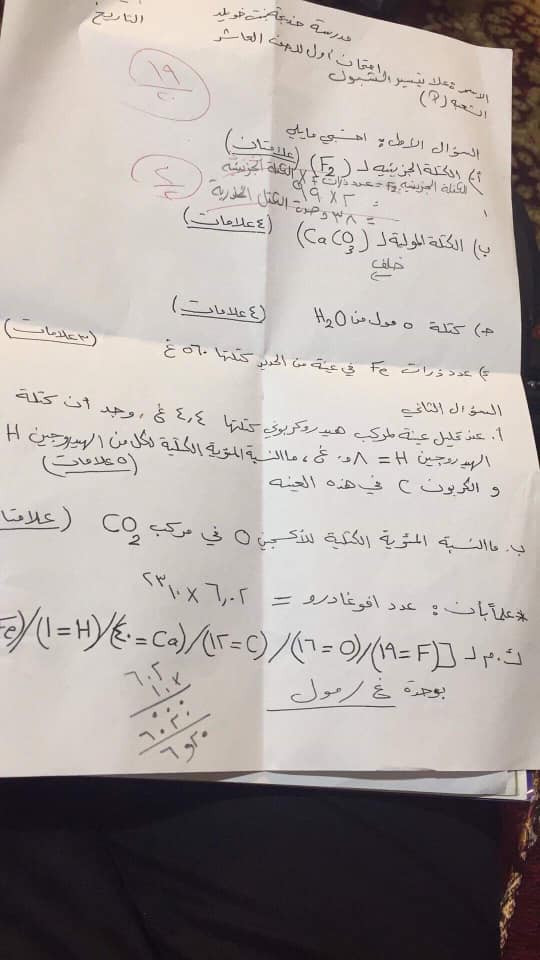 مدرسة خديجة بنت خويلد
التاريخ
امتحان أول للصف العاشر
الاسم : علا تيسير الشبول
الشعبة (P)
١٩
٢٠
السؤال الأول : احسبي ما يلي
أ) الكتلة الجزيئية لـ (F2) (علامتان)
الكتلة الجزيئية F2 = عدد ذرات F × الكتلة
= ٢ × ١٩
= ٣٨ وحدة الكتل الذرية
٢
٢
ب) الكتلة المولية لـ (CaCO3) (٤ علامات)
خلف
جـ) كتلة ٥ مول من H2O (٤ علامات)
د) عدد ذرات Fe في عينة من الحديد كتلتها ٥٦٠ غ (٣ علامات)
السؤال الثاني
أ. عند تحليل عينة لمركب هيدروكربوني كتلتها ٤,٤ غ ، وجد أن كتلة
الهيدروجين H = ٠,٨ غ ، ما النسبة المئوية الكتلية لكل من الهيدروجين H
و الكربون C في هذه العينه (٥ علامات)
ب. ما النسبة المئوية الكتلية للأكسجين O في مركب CO2 (علامتا
*علماً بأن : عدد افوغادرو = ٦,٠٢ × ١٠ ٢٣
ك.م لـ [F=١٩)/(O=١٦)/(C=١٢)/(Ca=٤٠)/(H=١)/(Fe
بوحدة غ/مول
٦٠٢
١٠٠
٠٠٠